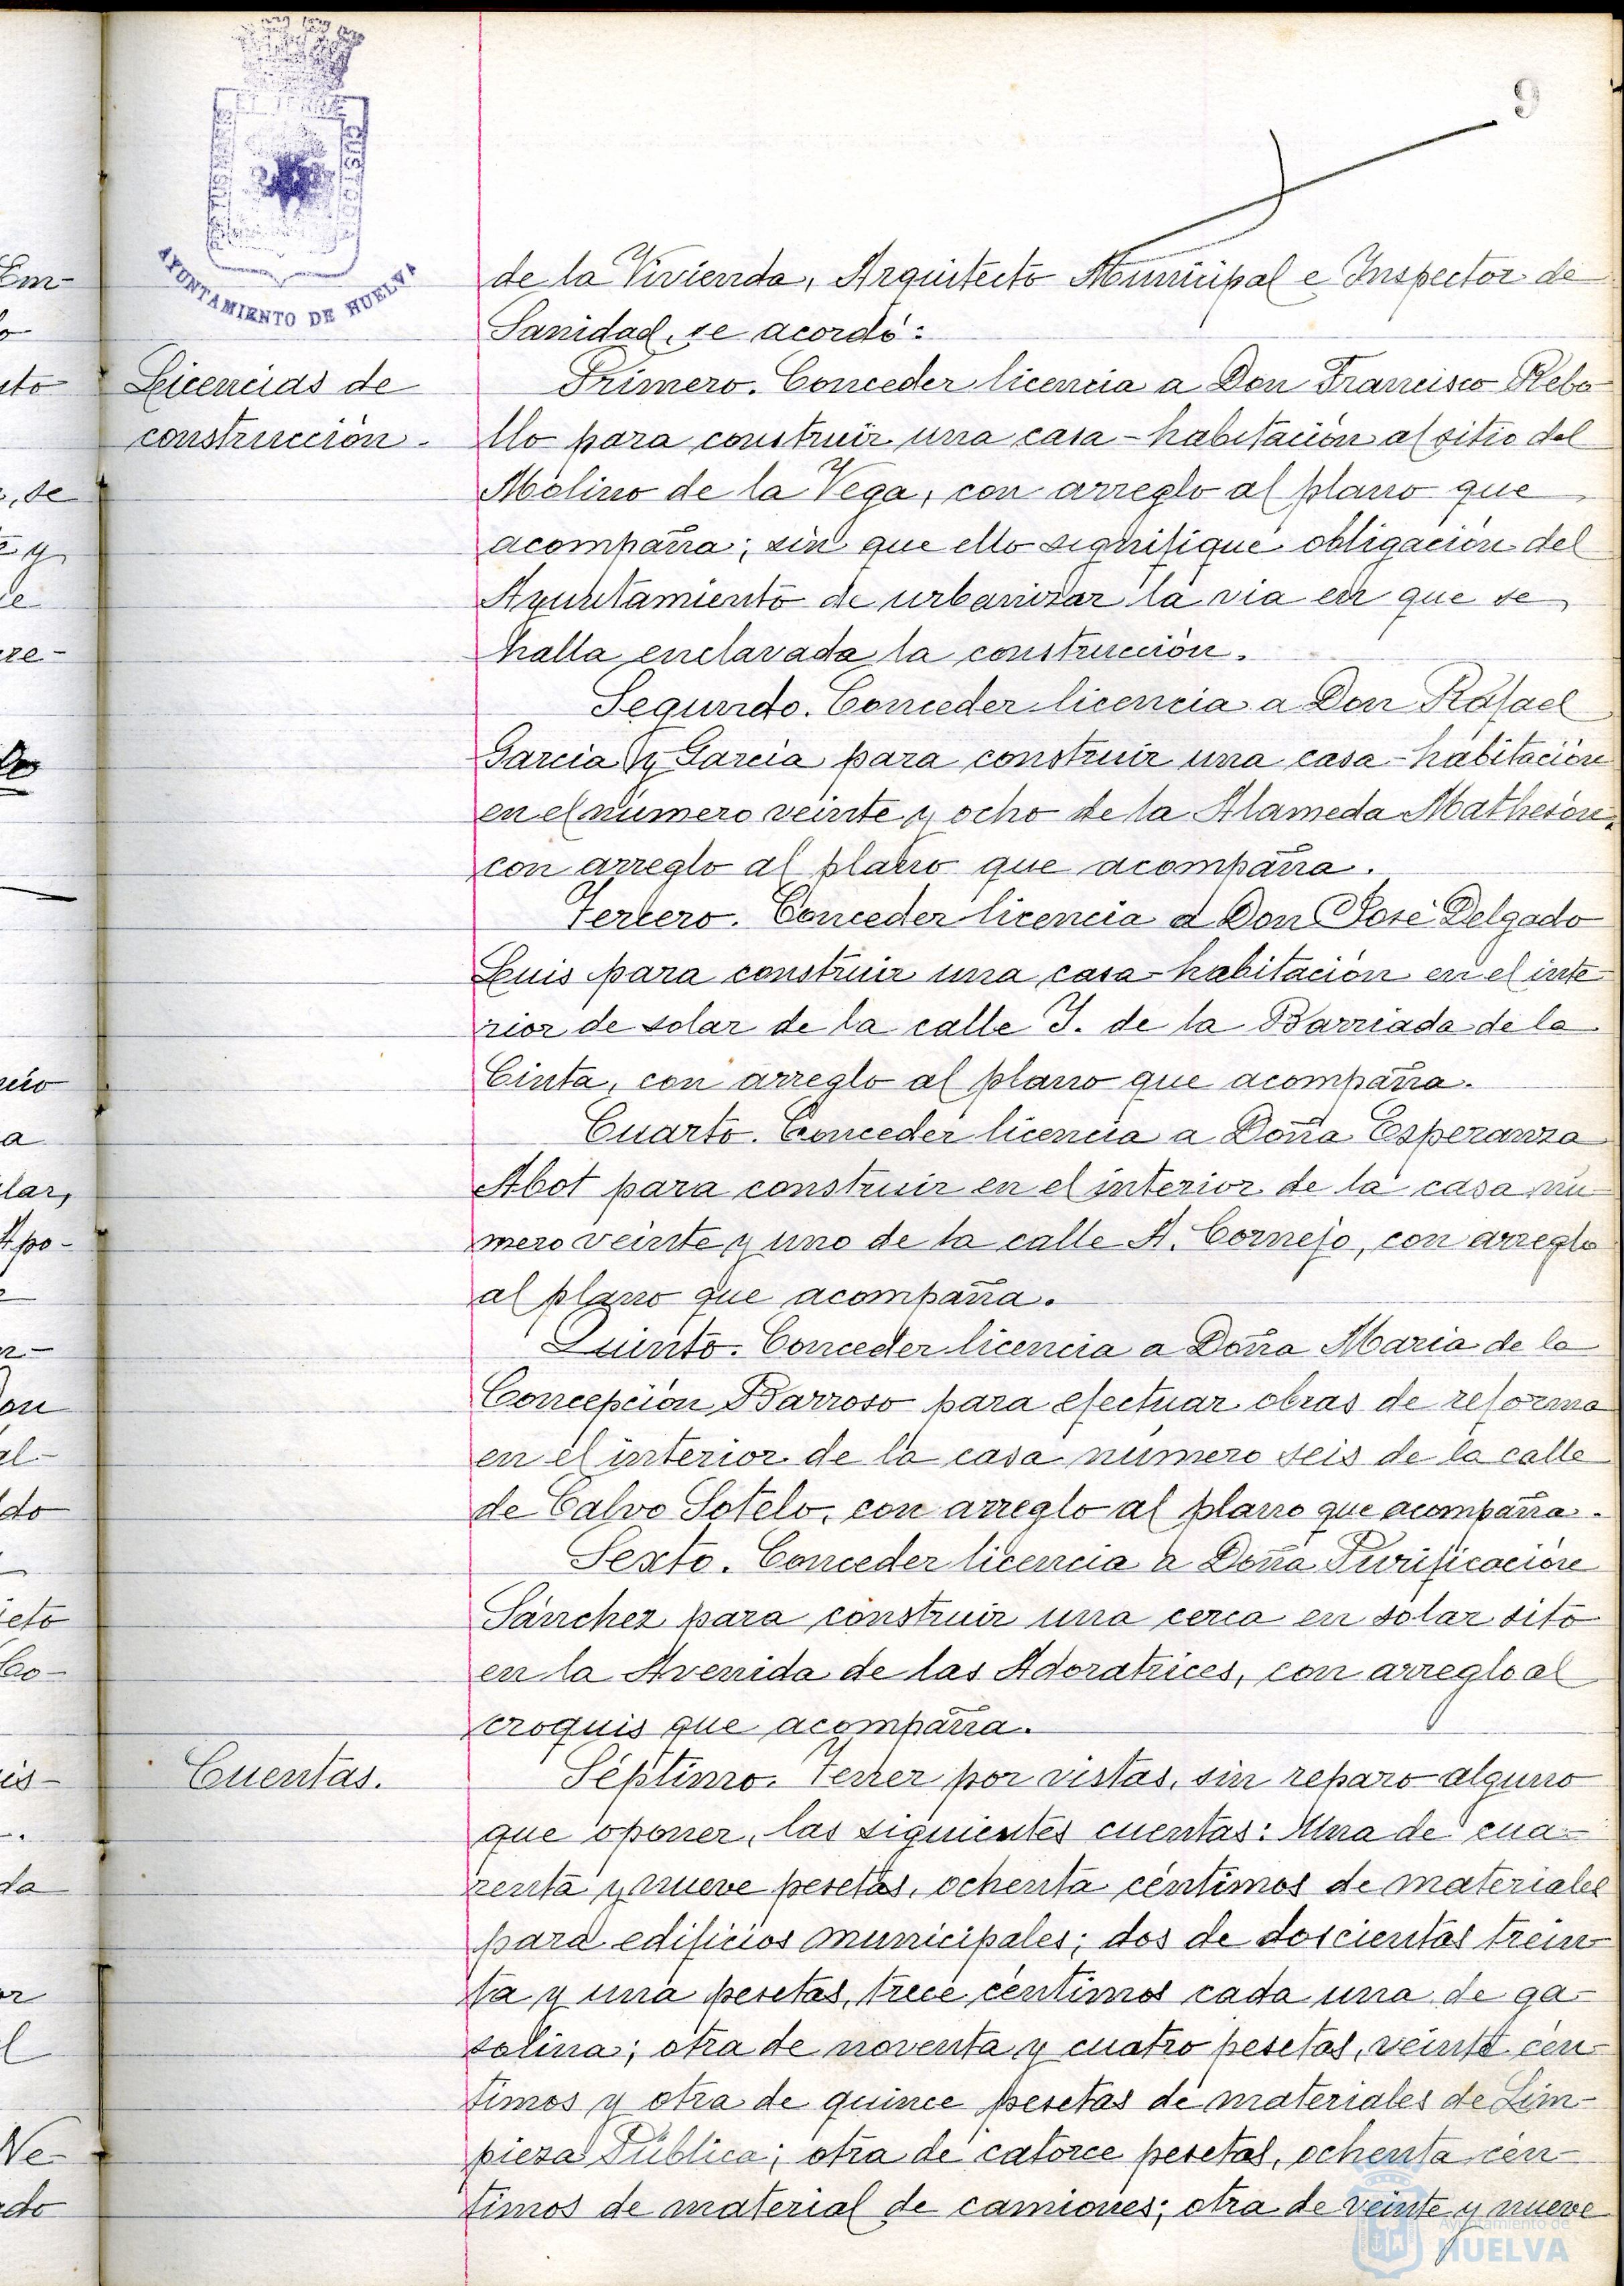 9
AYUNTAMIENTO DE HUELVA
de la Vivienda, Arquitecto Municipal e Inspector de
Sanidad, se acordó:
Licencias de
construcción.
Primero. Conceder licencia a Don Francisco Rebo
llo para construir una casa-habitación al sitio del
Molino de la Vega, con arreglo al plano que
acompaña; sin que ello signifique obligación del
Ayuntamiento de urbanizar la via en que se
halla enclavada la construcción.
Segundo. Conceder licencia a Don Rafael
Garcia y Garcia para construir una casa-habitación
en el número veinte y ocho de la Alameda Matheson,
con arreglo al plano que acompaña.
Tercero. Conceder licencia a Don José Delgado
Luis para construir una casa-habitación en el inte
rior de solar de la calle J. de la Barriada de la
Cinta, con arreglo al plano que acompaña.
Cuarto. Conceder licencia a Doña Esperanza
Abot para construir en el interior de la casa nú
mero veinte y uno de la calle A. Cornejo, con arreglo
al plano que acompaña.
Quinto. Conceder licencia a Doña Maria de la
Concepción Barroso para efectuar obras de reforma
en el interior de la casa número seis de la calle
de Calvo Sotelo, con arreglo al plano que acompaña.
Sexto. Conceder licencia a Doña Purificación
Sánchez para construir una cerca en solar sito
en la Avenida de las Adoratrices, con arreglo al
croquis que acompaña.
Cuentas.
Séptimo. Tener por vistas, sin reparo alguno
que oponer, las siguientes cuentas: Una de cua-
renta y nueve pesetas, ochenta céntimos de materiales
para edificios municipales; dos de doscientas trein-
ta y una pesetas, trece céntimos cada una de ga-
solina; otra de noventa y cuatro pesetas, veinte cén-
timos y otra de quince pesetas de materiales de Lim-
pieza Pública; otra de catorce pesetas, ochenta cén-
timos de material de camiones; otra de veinte y nueve
Ayuntamiento de
HUELVA